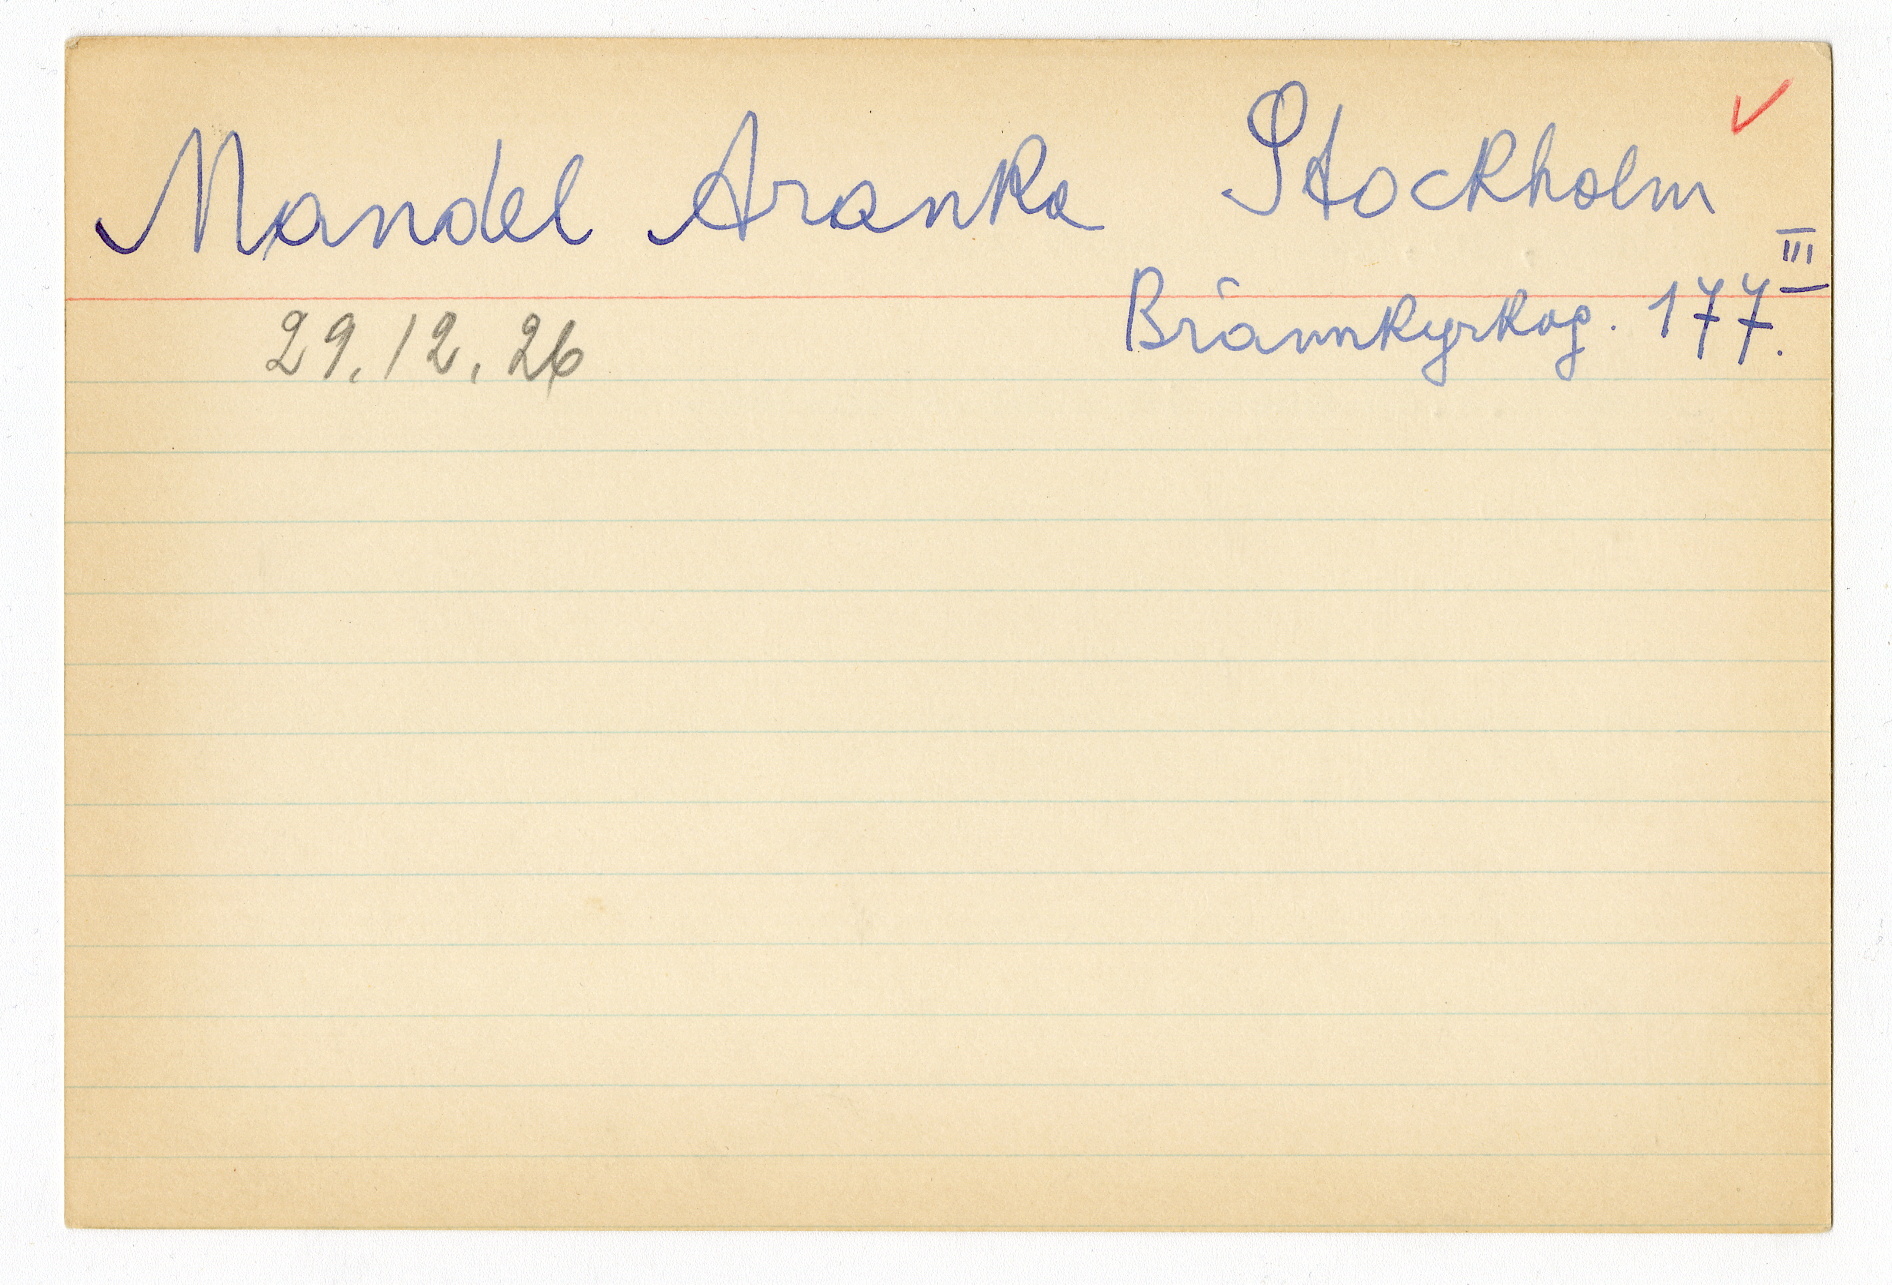 Mandel Aranka Stockholm
Brännkyrkag. 177. III
29.12.26